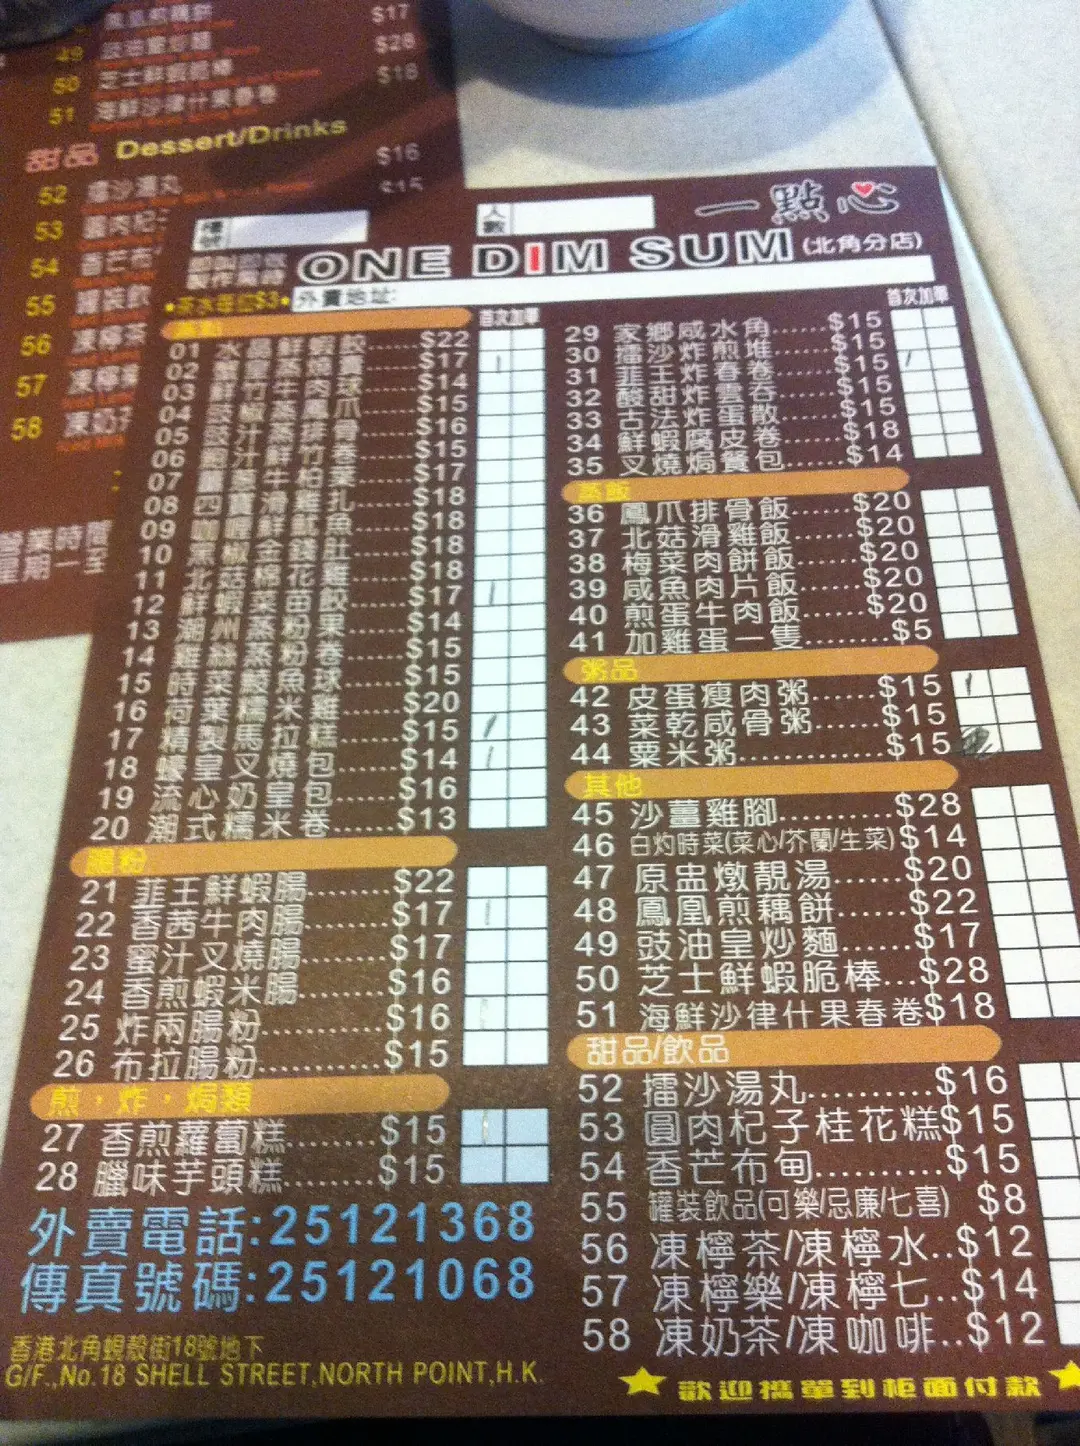 $17
49 豉油皇炒麵 $28
50 芝士鮮蝦脆棒 $18
51 海鮮沙律什果春卷
甜品 Dessert/Drinks
52 擂沙湯丸 $16
53 圓肉杞 $15
54 香芒布
55 罐裝飲
56 凍檸茶
57 凍檸
58 凍奶
營業時間
星期一至
檯號
人數
一點心
ONE DIM SUM (北角分店)
•茶水每位$3•
外賣地址:
首次 加單
首次 加單
01 水晶鮮蝦餃......$22
02 $17
03 鮮竹牛肉球......$14
04 豉椒蒸鳳爪......$15
05 豉汁蒸排骨......$16
06 鮑汁鮮竹卷......$15
07 牛柏葉......$17
08 四寶滑雞扎......$18
09 咖喱鮮魷魚......$18
10 黑椒金錢肚......$18
11 北菇棉花雞......$18
12 鮮蝦菜苗餃......$17
13 潮州蒸粉果......$14
14 雞絲蒸粉卷......$15
15 時菜鯪魚球......$15
16 荷葉糯米雞......$20
17 精製馬拉糕......$15
18 蠔皇叉燒包......$14
19 流心奶皇包......$16
20 潮式糯米卷......$13
腸粉
21 韮王鮮蝦腸......$22
22 香茜牛肉腸......$17
23 蜜汁叉燒腸......$17
24 香煎蝦米腸......$16
25 炸兩腸粉......$16
26 布拉腸粉......$15
煎,炸,焗類
27 香煎蘿蔔糕......$15
28 臘味芋頭糕......$15
外賣電話:25121368
傳真號碼:25121068
香港北角蜆殼街18號地下
G/F.,No.18 SHELL STREET,NORTH POINT,H.K.
29 家鄉咸水角......$15
30 擂沙炸煎堆......$15
31 韮王炸春卷......$15
32 酸甜炸雲吞......$15
33 古法炸蛋散......$15
34 鮮蝦腐皮卷......$18
35 叉燒焗餐包......$14
蒸飯
36 鳳爪排骨飯......$20
37 北菇滑雞飯......$20
38 梅菜肉餅飯......$20
39 咸魚肉片飯......$20
40 煎蛋牛肉飯......$20
41 加雞蛋一隻......$5
粥品
42 皮蛋瘦肉粥......$15
43 菜乾咸骨粥......$15
44 粟米粥......$15
其他
45 沙薑雞腳......$28
46 白灼時菜(菜心/芥蘭/生菜) $14
47 原盅燉靚湯......$20
48 鳳凰煎藕餅......$22
49 豉油皇炒麵......$17
50 芝士鮮蝦脆棒...$28
51 海鮮沙律什果春卷$18
甜品/飲品
52 擂沙湯丸......$16
53 圓肉杞子桂花糕$15
54 香芒布甸......$15
55 罐裝飲品(可樂/忌廉/七喜) $8
56 凍檸茶/凍檸水..$12
57 凍檸樂/凍檸七..$14
58 凍奶茶/凍咖啡..$12
★歡迎攜單到柜面付款★